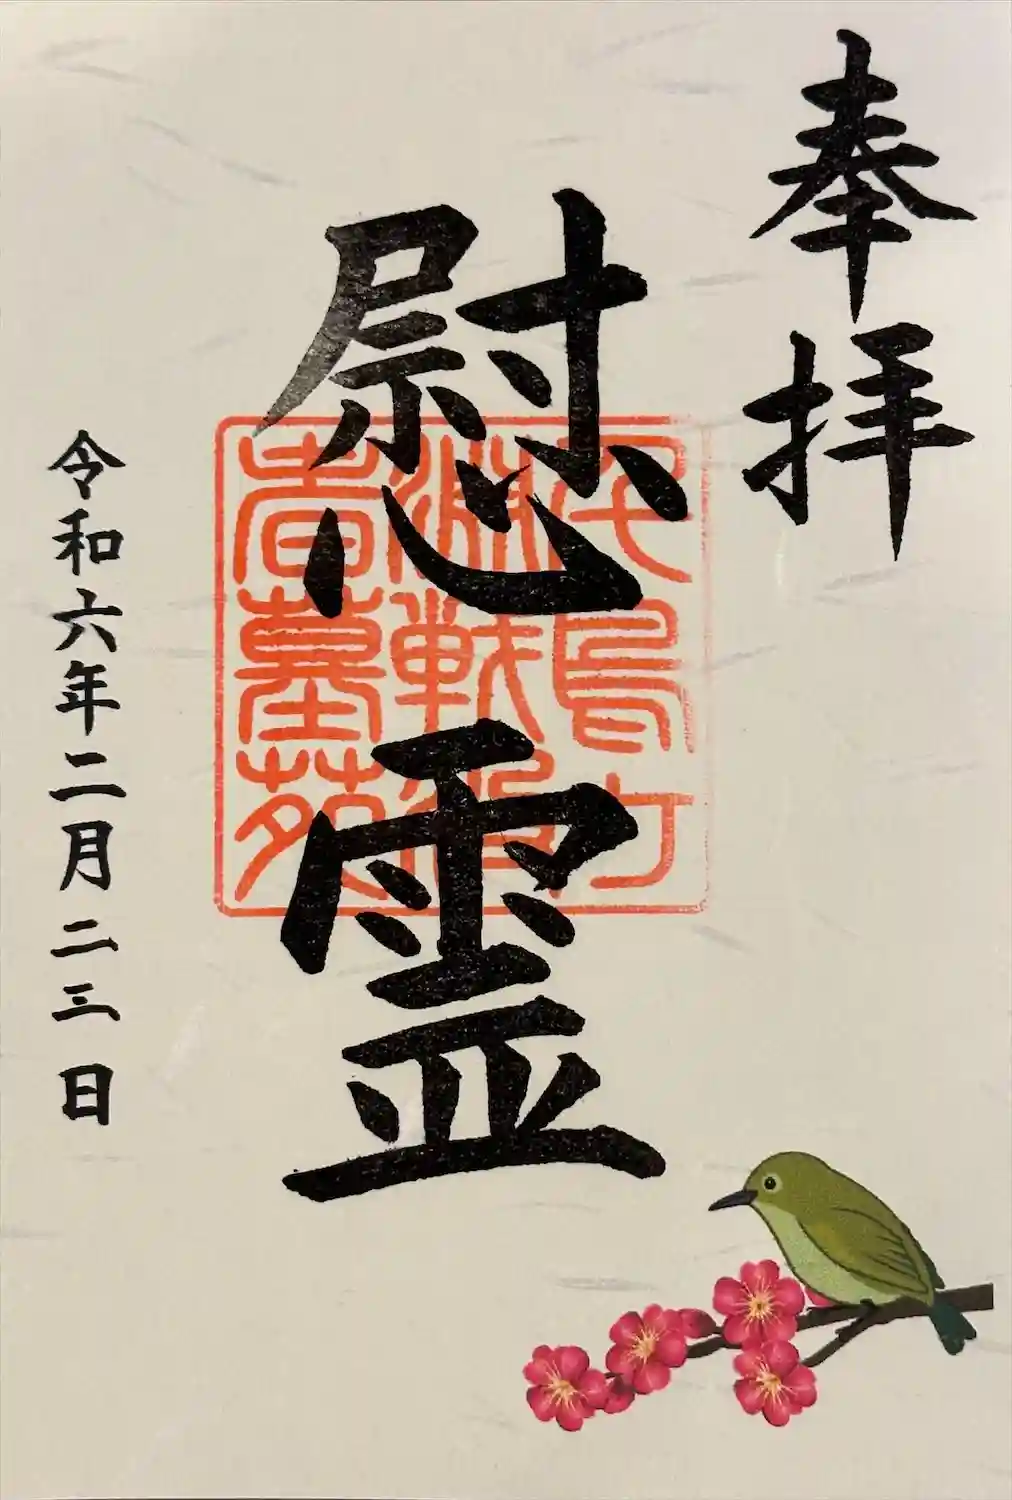 奉拝
慰霊
千鳥ヶ
淵戦没
者墓苑
令和六年二月二三日